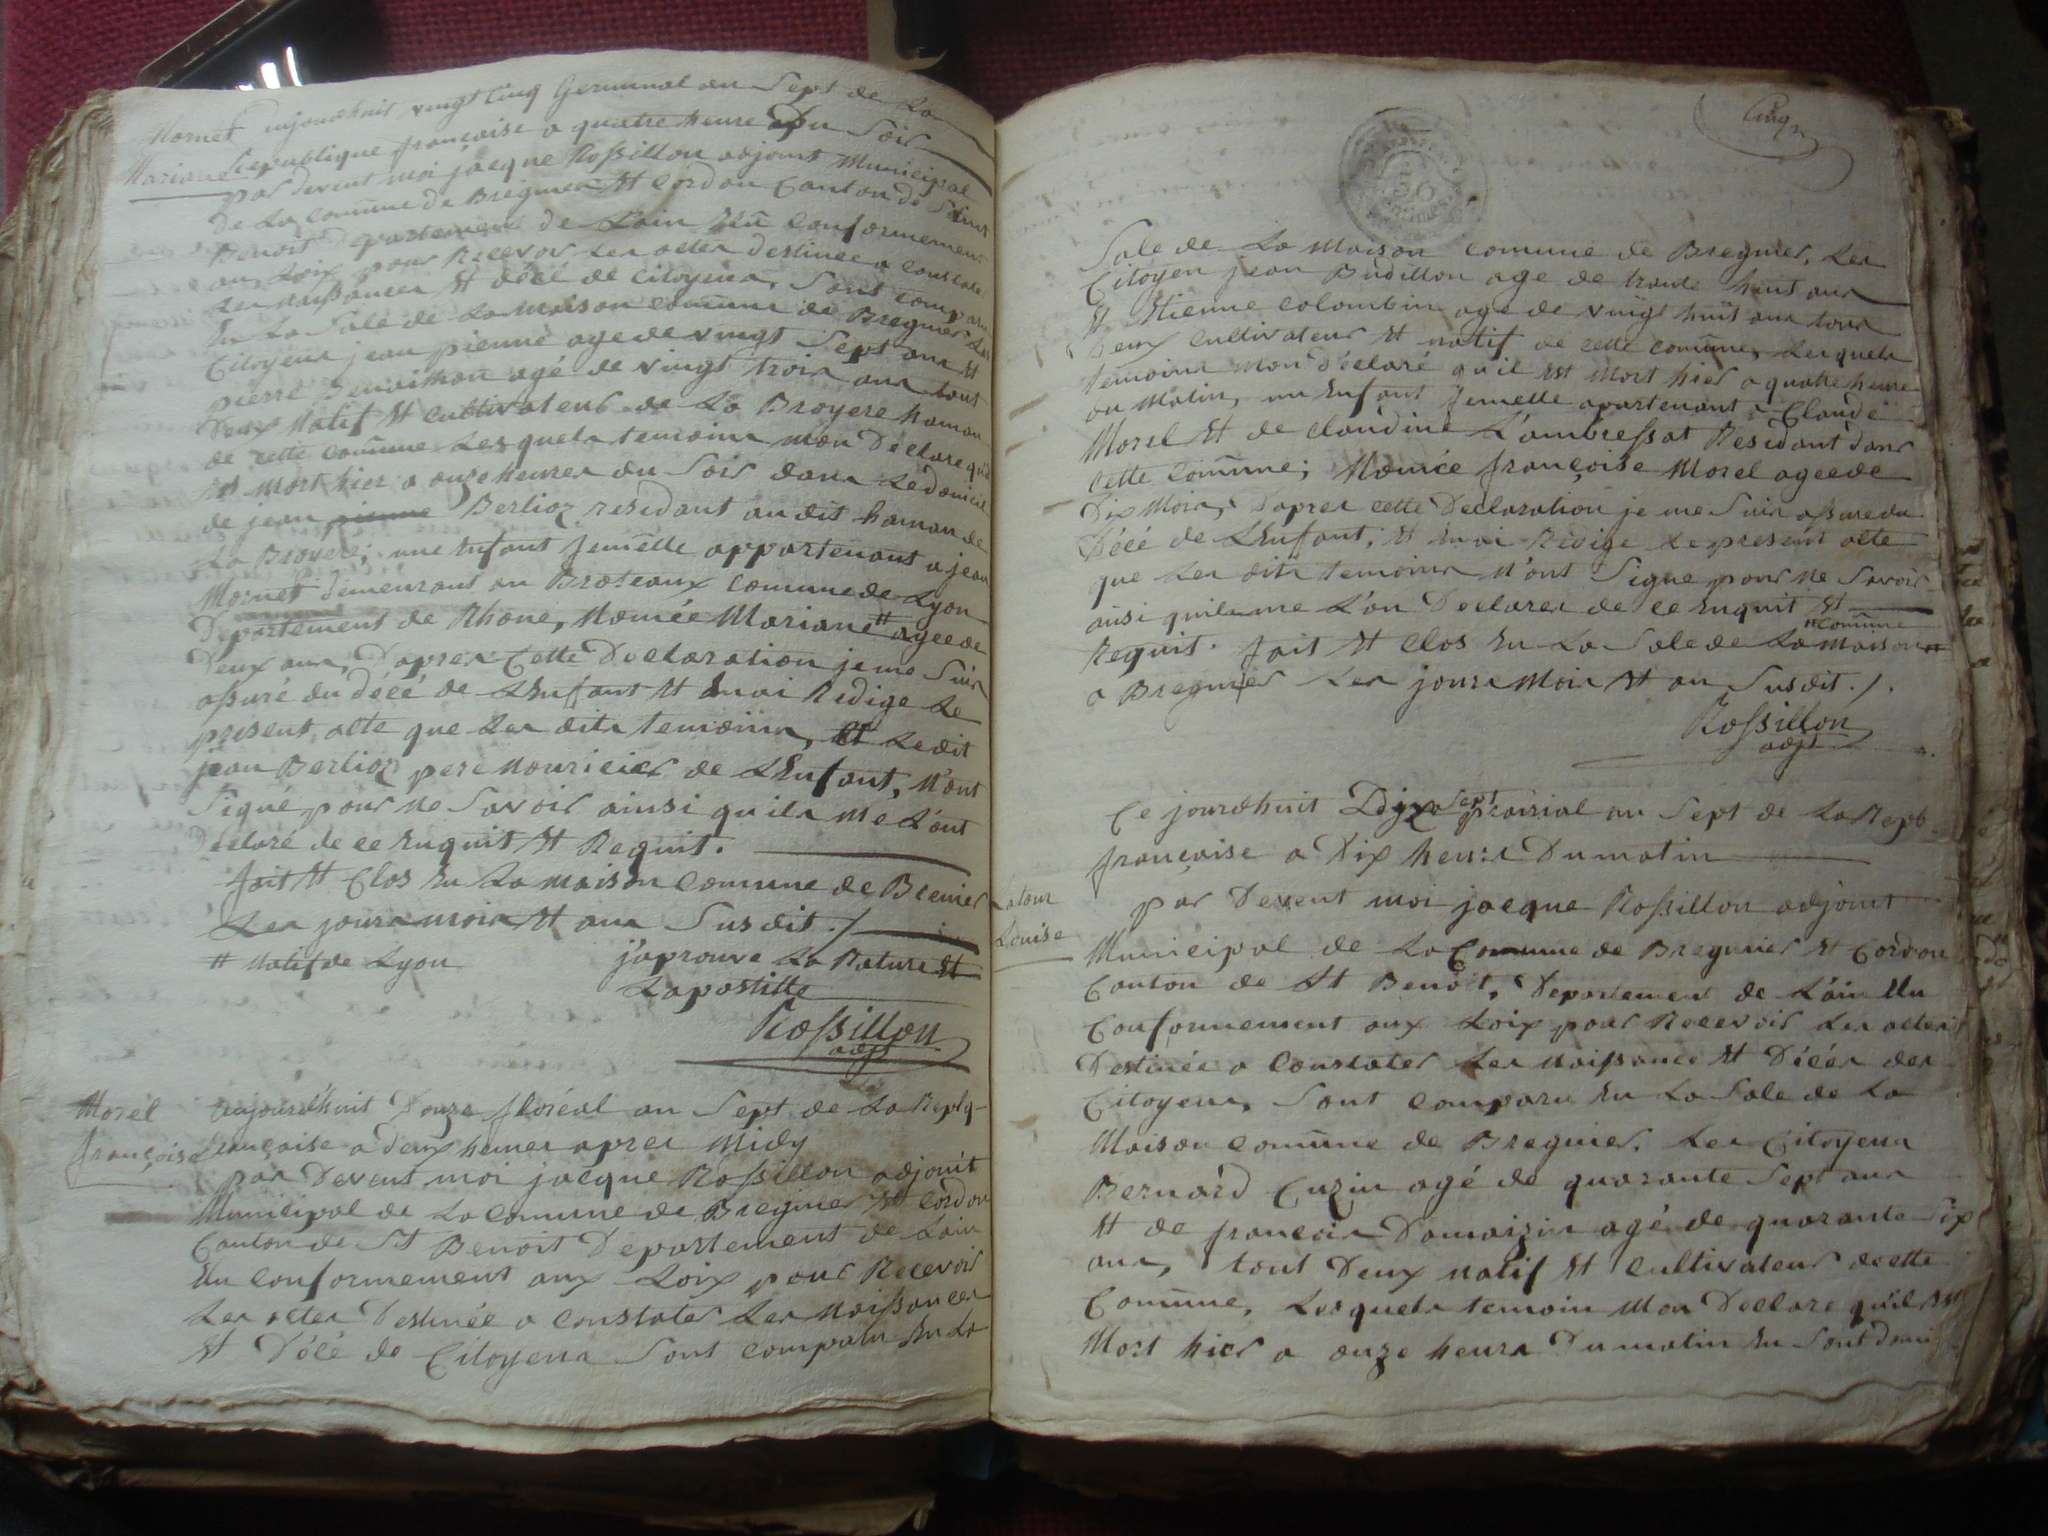 Mornet
Mariane
aujourdhuit vingt Cinq Germinal an Sept de La
Republique françaisse a quatre heure du Soir
par devent moi jacque Rossillon adjoint Municipal
De La comune de Bregnier et Cordon Canton de Saint
Benoit Departement de Lain Elu Conformement
aux Loix pour Recevoir Les actes destinée a constaté
Les naissances et décé de Citoyens, Sont comparu
En La Sale de La maison comune de Bregnier Les
Citoyens jean pierre age de vingt Sept ans et
pierre age de vingt trois ans tout
Deux Natif et Cultivateur de La Broyere hamau
de cette comune Lesquels temoins mon Declare quil
Est mort hier a onze heures du Soir dans Le domicil
de jean pierre Berlioz residant au dit hamau de
La Broyere, une Enfant femelle appartenant a jean
Mornet demeurant au Broteaux comune de Lyon
Departement de Rhone, Nomée Mariane # agee de
Deux ans, Dapres Cette Declaration je me Suis
assuré du décé de LEnfant et Enai Redige Le
present acte que Les dits temoins, et Ledit
jean Berlioz pere nouricier de LEnfant, N'ont
Signé pour ne Savoir ainsi quils me L'ont
Declaré de ce Enquit et Requit.
fait et Clos En La maison comune de Brenier
Les jours mois et ans Susdit ./.
# Natif de Lyon
j'aprouve La Rature et
Lapostille
Rossillon
adjt
Morel
françoise
aujourdhuit Douze floréal an Sept de La Repbq
française a deux heures apres Midy
par Devent moi jacque Rossillon adjoint
Municipal de La Comune de Bregnier et Cordon
Canton de St Benoit Departement de Lain
Elu conformement aux Loix pour Recevoir
Les actes Destinée a constater Les Naissances
et Décé de Citoyens Sont comparu En La
Cinq
Sale de La Maison comune de Bregnier, Les
Citoyen jean Budillon age de trante huit ans
et Etienne colombin age de vingt huit ans tous
Deux Cultivateur et natif de cette comune, Lesquels
temoins mon Déclaré qu'il Est Mort hier a quatre heure
du Matin, un Enfant femelle apartenant a Claude
Morel et de claudine L'ambressat Residant dans
Cette Comune, Nomée françoise Morel agee de
Dix Mois, Dapres cette Declaration je me Suis assure du
Décé de LEnfant, et Enai Redige Le present acte
que Les dits temoins N'ont Signe pour ne Savoir
ainsi quils me L'on Declarer de ce Enquit et
Requit. fait et Clos En La Sale de La Maison #
# Comune
a Bregnier Les jours Mois et an Susdit ./.
Rossillon
adjt
Latour
Louise
Ce jourdhuit Dix Sept prairial an Sept de La Repb
française a Dix heurs Du matin
par Devent moi jacque Rossillon adjoint
Municipal de La Comune de Bregnier et Cordon
Canton de St Benoit, Departement de Lain Elu
Conformement aux Loix pour Recevoir Les actes
Destinée a Constater Les Naissance et Décés des
Citoyens, Sont comparu En La Sale de La
Maison comune de Bregnier. Les Citoyens
Bernard Cuzin agé de quarante Sept ans
et de françois Domaizin agé de quarante Six
ans, tout Deux natif et Cultivateur de cette
Comune, Lesquels temoin Mon Declare qu'il Est
Mort hier a onze heurs Du matin En Sont domi